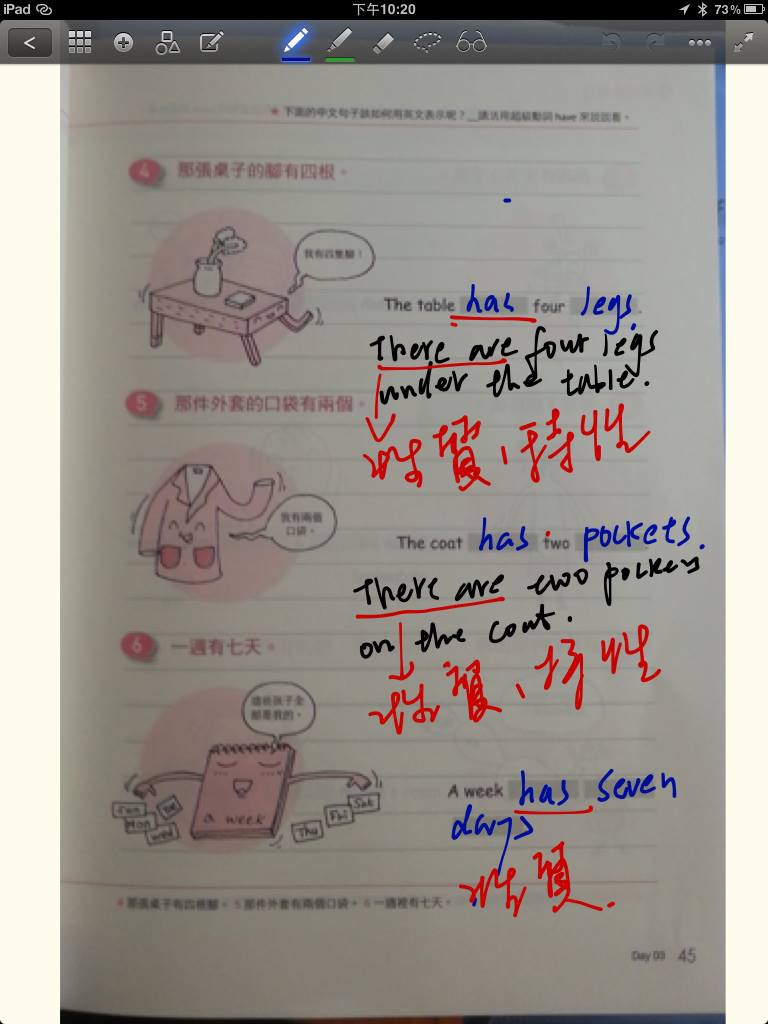 iPad
下午10:20
73%
★ 下面的中文句子該如何用英文表示呢？__請活用超級動詞 have 來說說看。
4 那張桌子的腳有四根。
我有四隻腳！
The table has four legs.
There are four legs
under the table.
性質、特性
5 那件外套的口袋有兩個。
我有兩個
口袋。
The coat has two pockets.
There are two pockets
on the coat.
性質、特性
6 一週有七天。
這些孩子全
部是我的。
Sun
Mon
Tue
Wed
Thu
Fri
Sat
a week
A week has seven
days
性質.
4 那張桌子有四根腳。 5 那件外套有兩個口袋。 6 一週裡有七天。
Day 03 45